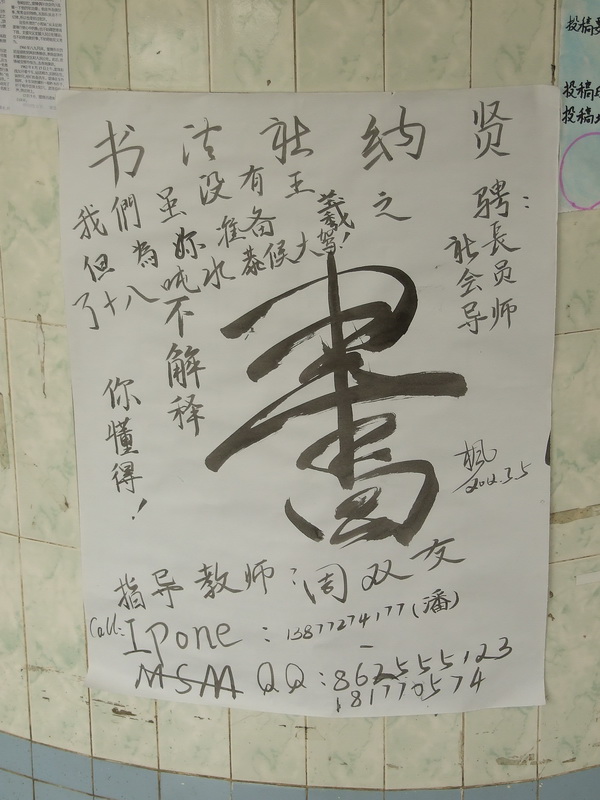 书法社纳贤
我們虽没有王羲之
但為妳准备
了十八吨水恭候大驾!
不解释
你懂得!
聘:
社長
会员
导师
書
楓
2012.3.5
指导教师:周双友
Call: IPone: 13877274177(潘)
MSM QQ:862555123
181770574
投稿要
投稿
投稿